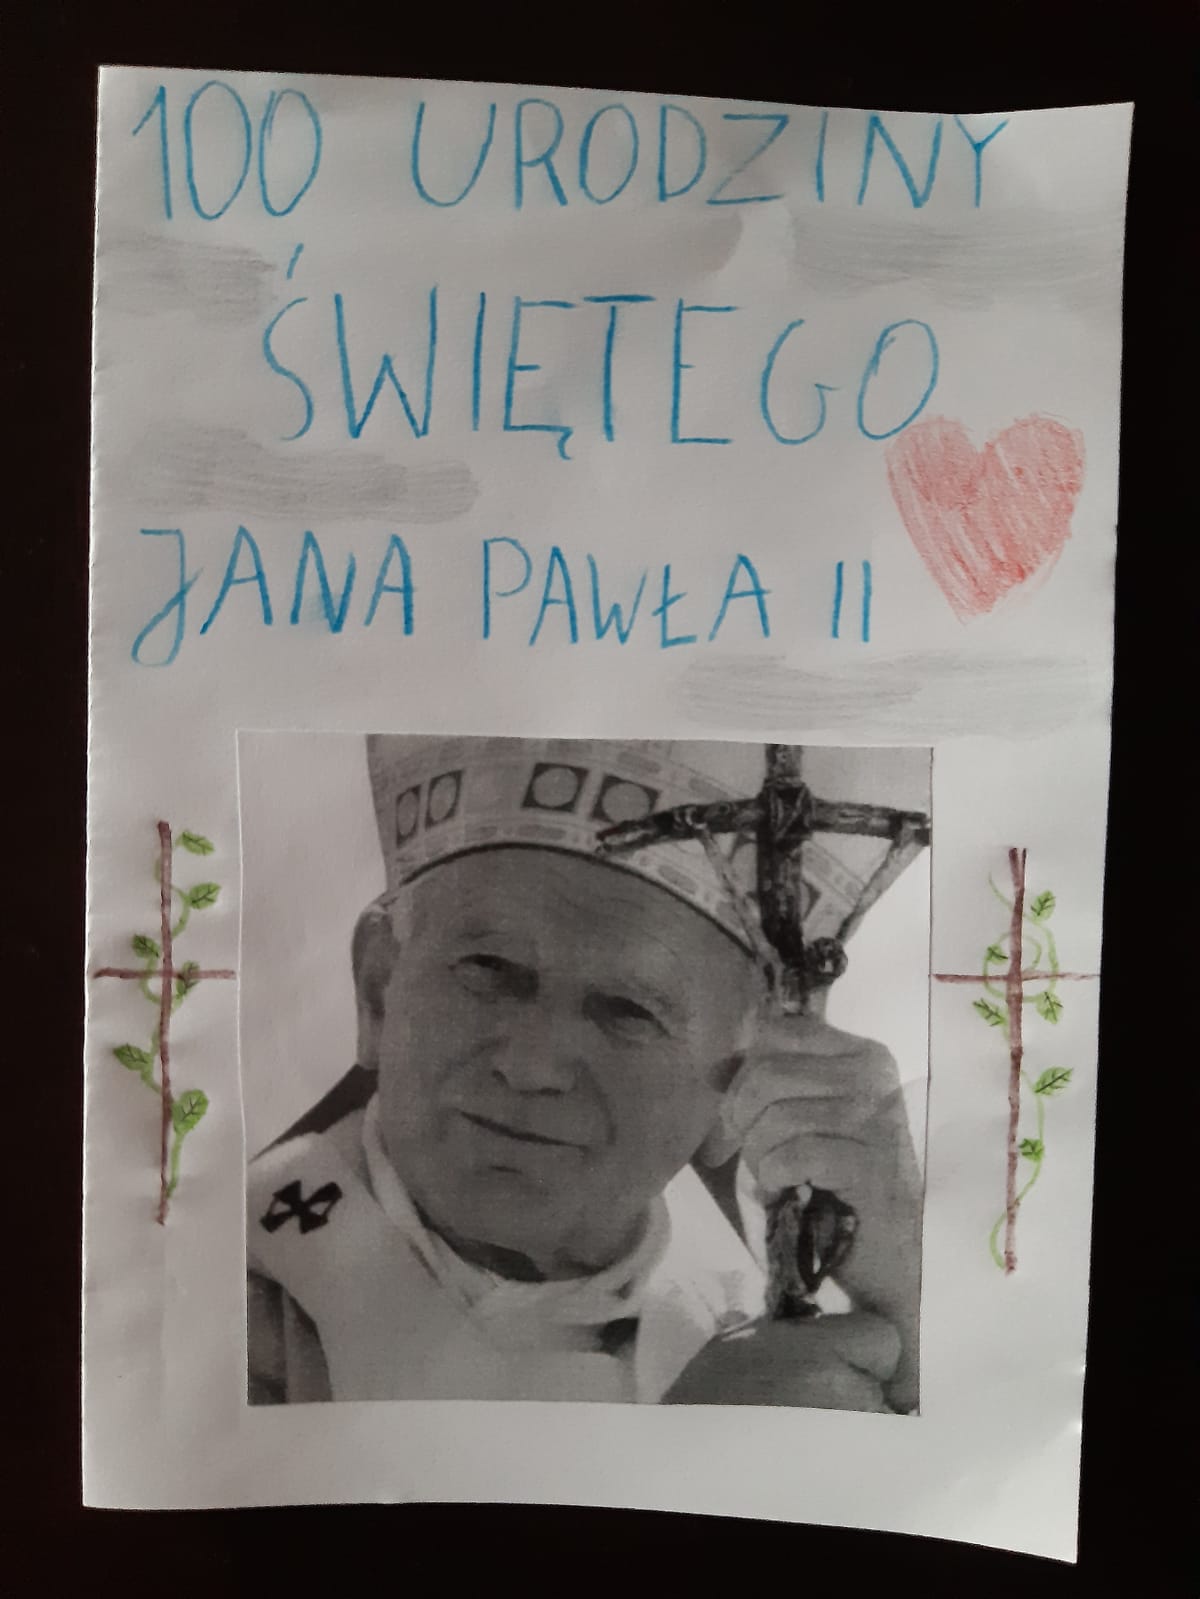 100 URODZINY
ŚWIĘTEGO
JANA PAWŁA II